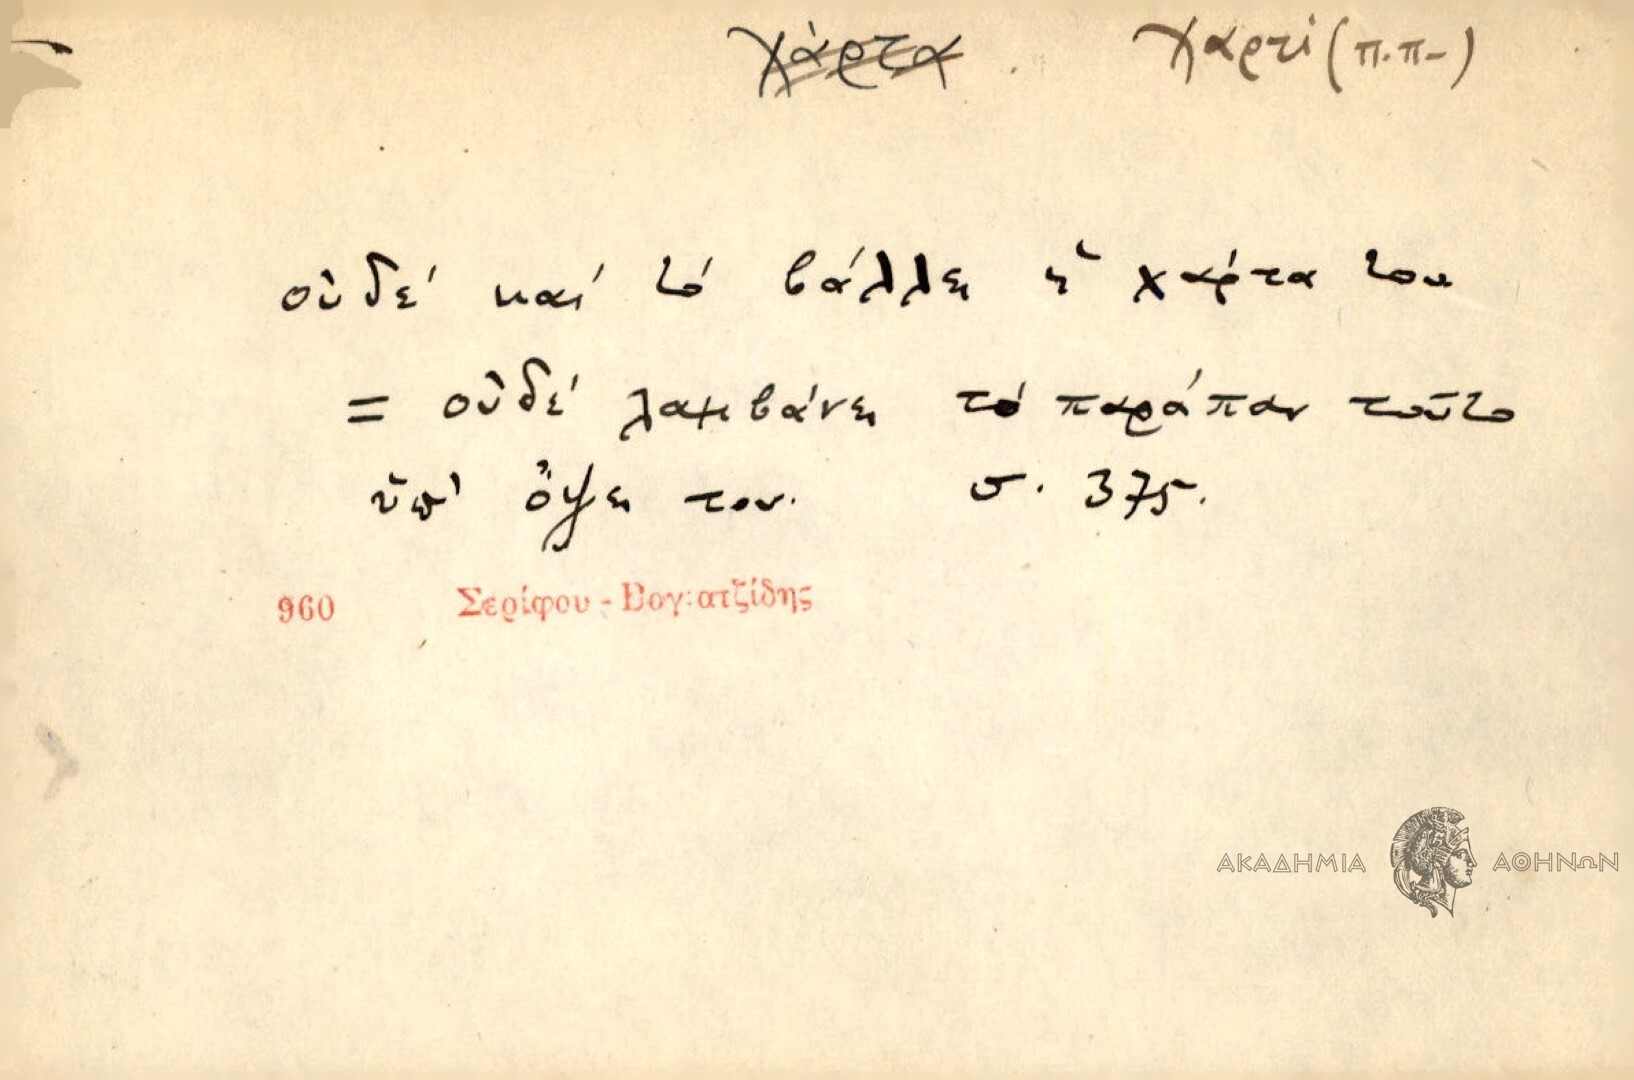 χάρτα χαρτί (π.π-)
οὐδέ καί τό βάλλει ἡ χάρτα του
= οὐδέ λαμβάνει τό παράπαν τοῦτο
ὑπ' ὄψει του. σ. 375.
960 Σερίφου - Βογιατζίδης
ΑΚΑΔΗΜΙΑ ΑΘΗΝΩΝ